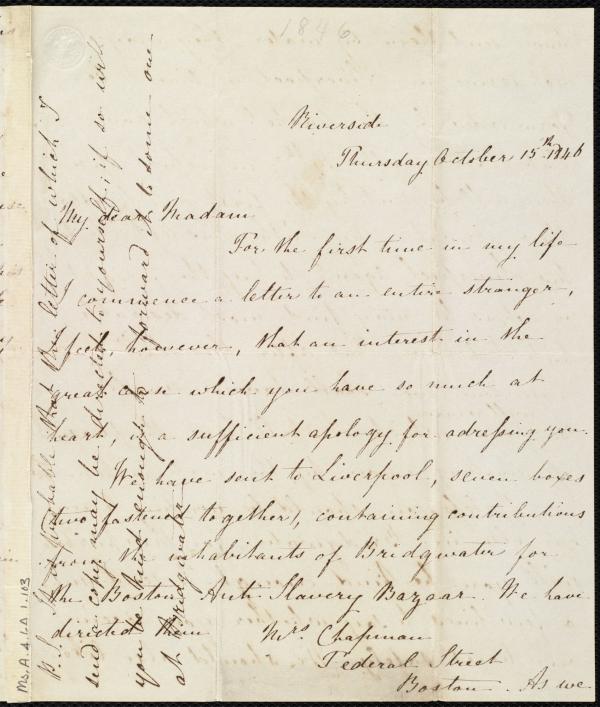 1846
Riverside
Thursday October 15th 1846
My dear Madam
For the first time in my life
I commence a letter to an entire stranger,
I feel, however, that an interest in the
great cause which you have so much at
heart, is a sufficient apology for adressing you.
We have sent to Liverpool, seven boxes
(two fastened together), containing contributions
from the inhabitants of Bridgwater for
the Boston Anti Slavery Bazaar. We have
directed them Mrs Chapman
Federal Street
Boston. As we
P.S. It is probable that the letter of which I
send a copy may be directed to yourself; if so will
you be kind enough to forward it to some one
at Bridgwater
Ms. A. 4. 6A 1. 103